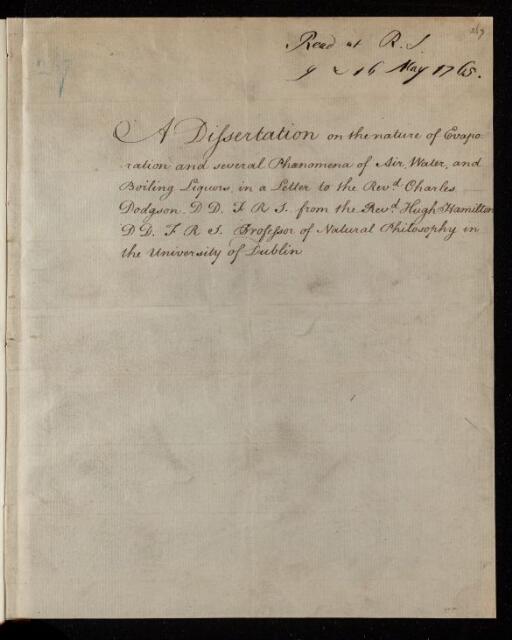 Read at R. S.
9 & 16 May 1765.
A Dissertation on the nature of Evapo
ration and several Phænomena of Air, Water, and
Boiling Liquors, in a Letter to the Revd. Charles
Dodgson. D D. F R S. from the Revd. Hugh Hamilton
D D. F R S. Professor of Natural Philosophy in
the University of Dublin